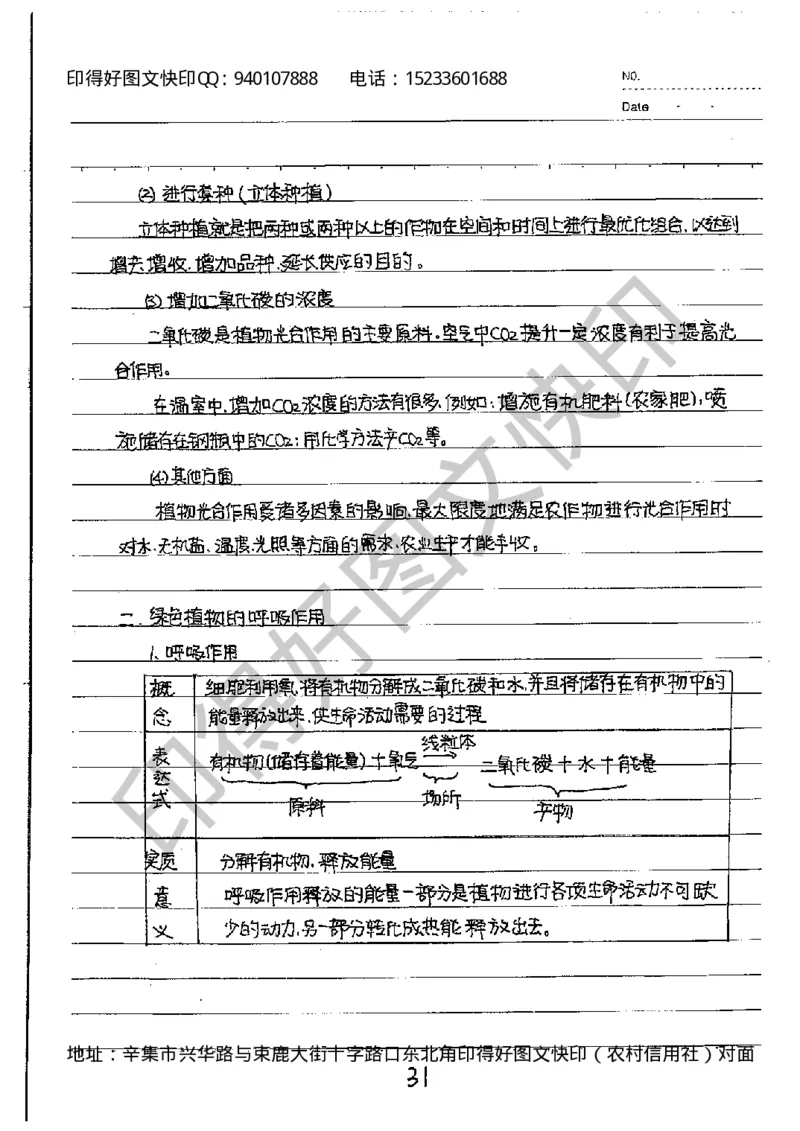 印得好图文快印QQ：940107888 电话：15233601688
NO.
Date - -
(2) 进行套种(立体种植)
立体种植就是把两种或两种以上的作物在空间和时间上进行最优化组合,以达到
增产增收、增加品种、延长供应的目的。
(3) 增加二氧化碳的浓度
二氧化碳是植物光合作用的主要原料。空气中CO₂提升一定浓度有利于提高光
合作用。
在温室中,增加CO₂浓度的方法有很多,例如：增施有机肥料(农家肥);喷
施储存在钢瓶中的CO₂;用化学方法产CO₂等。
(4)其他方面
植物光合作用受诸多因素的影响,最大限度地满足农作物进行光合作用时
对水、无机盐、温度、光照等方面的需求,农业生产才能丰收。
二、绿色植物的呼吸作用
1、呼吸作用
概 细胞利用氧,将有机物分解成二氧化碳和水,并且将储存在有机物中的
念 能量释放出来,供生命活动需要的过程
表 线粒体
达 有机物(储存着能量)+氧气 → 二氧化碳+水+能量
式 原料 场所 产物
实质 分解有机物,释放能量
意 呼吸作用释放的能量一部分是植物进行各项生命活动不可缺
义 少的动力,另一部分转化成热能释放出去。
地址：辛集市兴华路与束鹿大街十字路口东北角印得好图文快印（农村信用社）对面
31
印得好图文快印